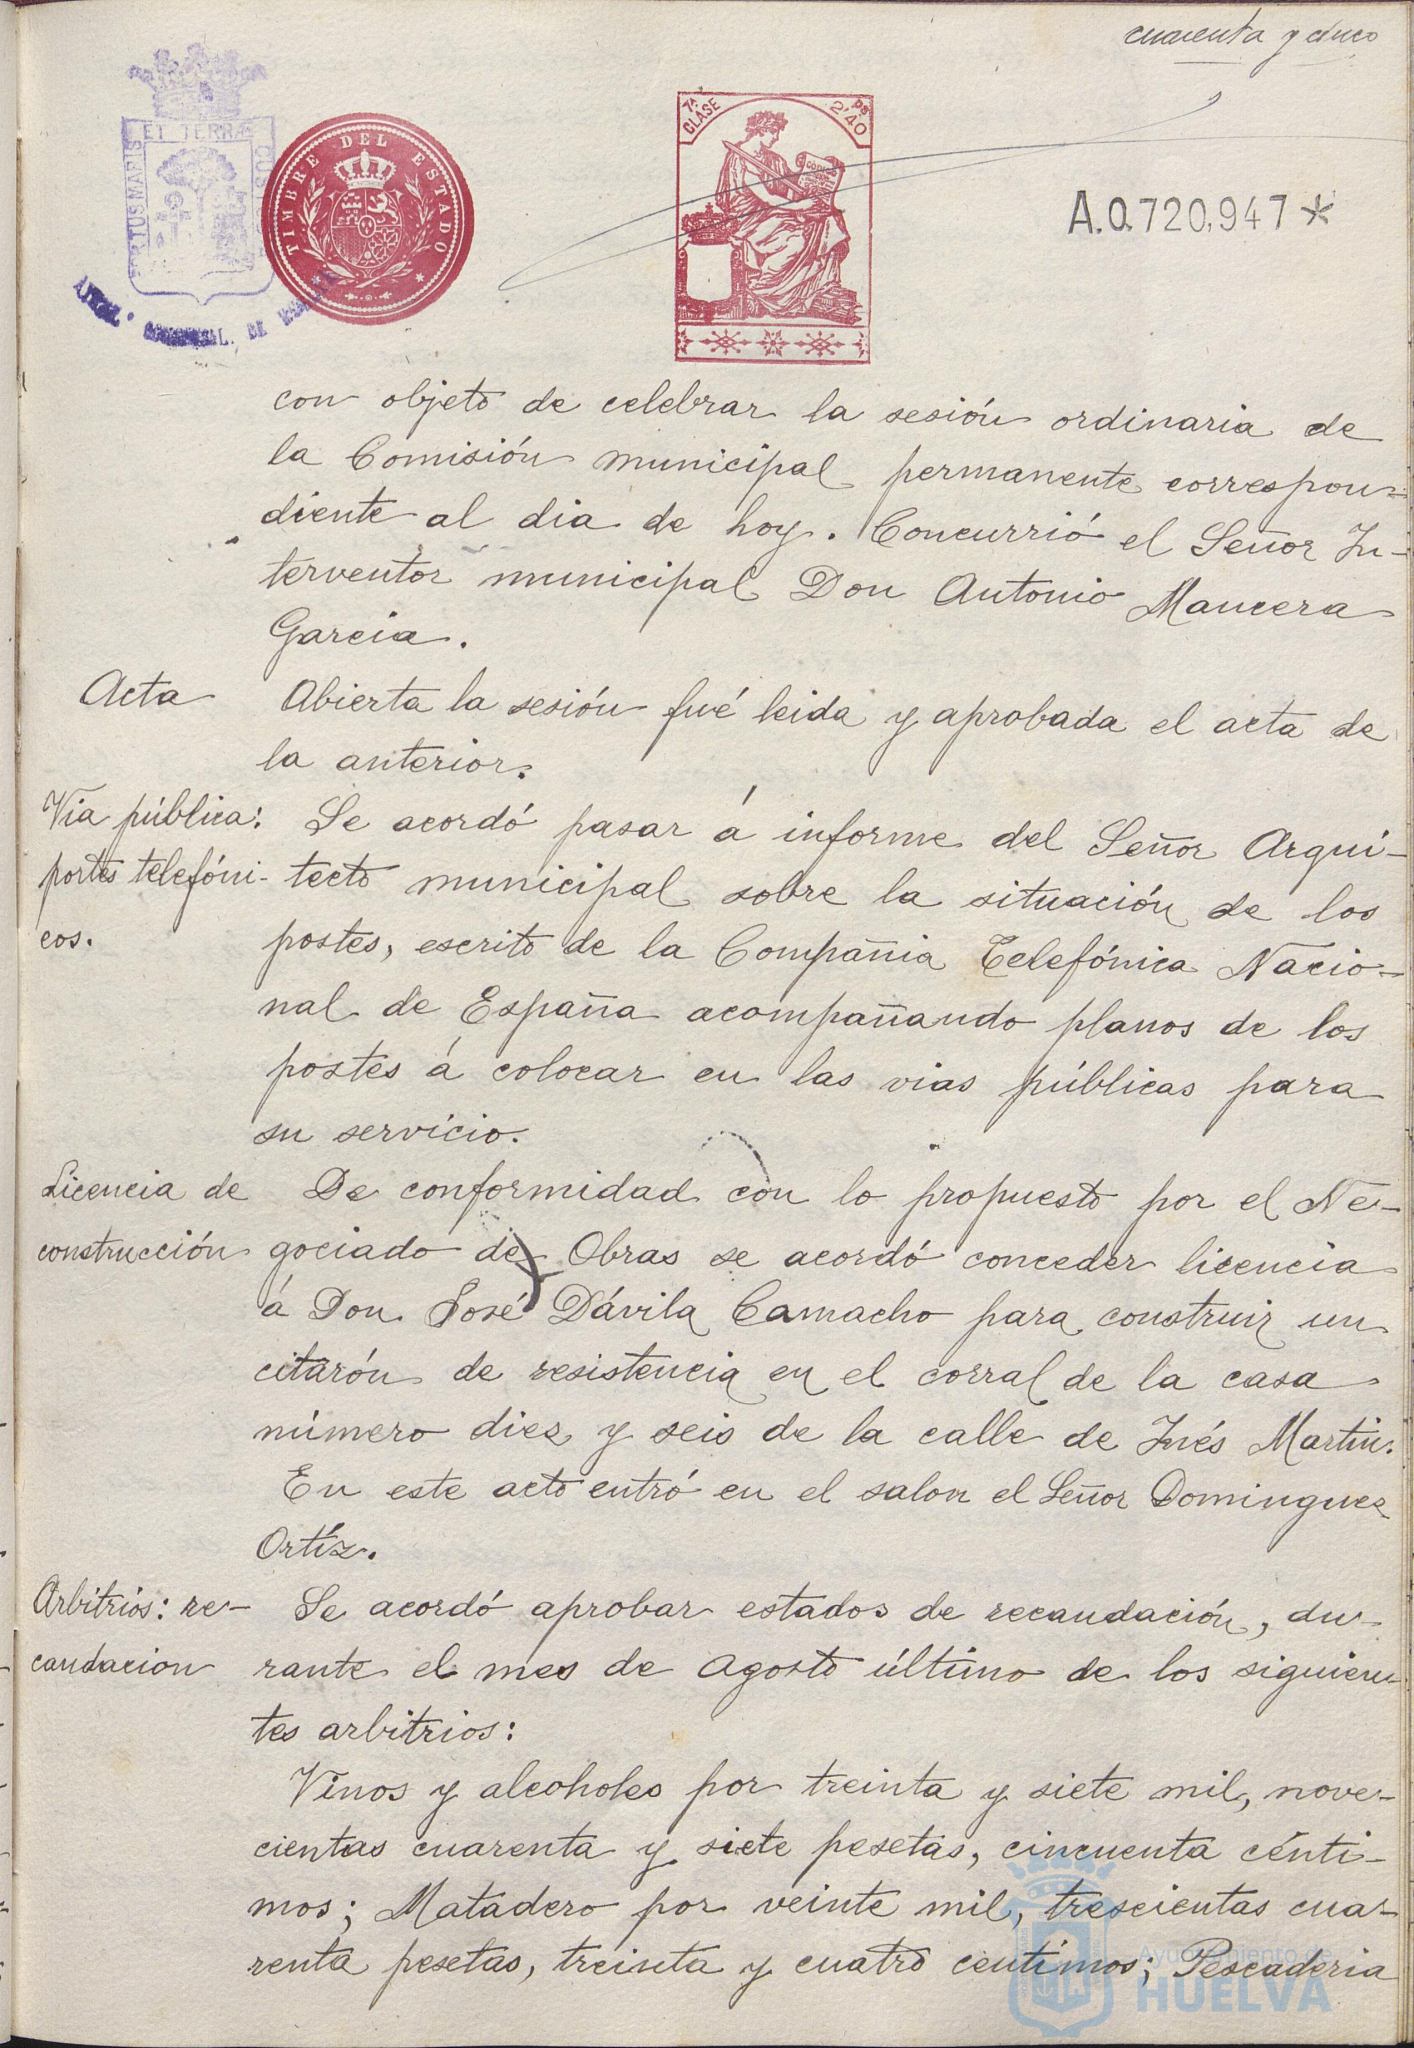 cuarenta y cinco
ET TERRÆ CUS
PORTUS MARIS
TIMBRE DEL ESTADO
7ª CLASE
2'40 Ps
A.0.720,947*
DE
con objeto de celebrar la sesión ordinaria de
la Comisión municipal permanente correspon-
diente al dia de hoy. Concurrió el Señor In-
terventor municipal Don Antonio Mancera
Garcia.
Acta
Abierta la sesión fué leida y aprobada el acta de
la anterior.
Via pública:
portes telefóni-
cos.
Se acordó pasar á informe del Señor Arqui-
tecto municipal sobre la situación de los
postes, escrito de la Compañia Telefónica Nacio-
nal de España acompañando planos de los
postes á colocar en las vias públicas para
su servicio.
Licencia de
construcción
De conformidad con lo propuesto por el Ne-
gociado de Obras se acordó conceder licencia
á Don José Dávila Camacho para construir un
citarón de resistencia en el corral de la casa
número diez y seis de la calle de Inés Martin.
En este acto entró en el salon el Señor Dominguez
Ortíz.
Arbitrios: re-
caudacion
Se acordó aprobar estados de recaudación, du-
rante el mes de Agosto último de los siguien-
tes arbitrios:
Vinos y alcoholes por treinta y siete mil, nove-
cientas cuarenta y siete pesetas, cincuenta cénti-
mos; Matadero por veinte mil, trescientas cua-
renta pesetas, treinta y cuatro centimos; Pescaderia
Ayuntamiento de
HUELVA